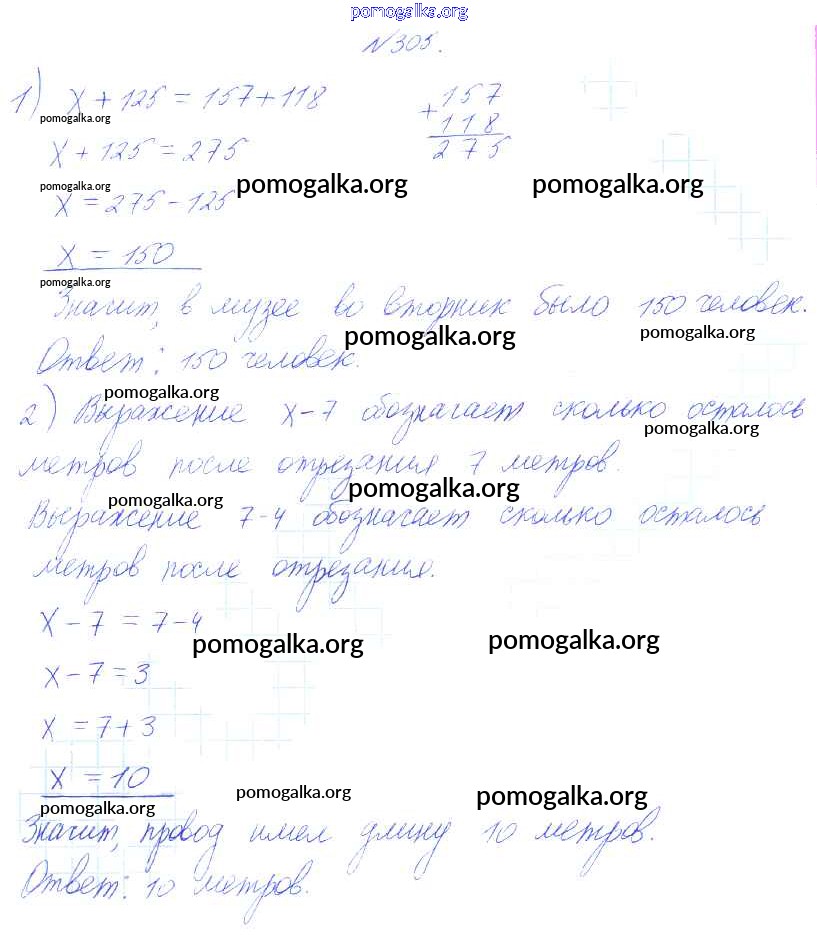 pomogalka.org
№305.
1) x + 125 = 157 + 118
157
+
118
275
pomogalka.org
x + 125 = 275
pomogalka.org pomogalka.org pomogalka.org
x = 275 - 125
x = 150
pomogalka.org
Значит, в музее во вторник было 150 человек.
pomogalka.org pomogalka.org
Ответ: 150 человек.
pomogalka.org
2) Выражение x - 7 обозначает сколько осталось
pomogalka.org
метров после отрезания 7 метров.
pomogalka.org pomogalka.org
Выражение 7-4 обозначает сколько осталось
метров после отрезания.
x - 7 = 7 - 4
pomogalka.org pomogalka.org
x - 7 = 3
x = 7 + 3
x = 10
pomogalka.org pomogalka.org pomogalka.org
Значит, провод имел длину 10 метров.
Ответ: 10 метров.